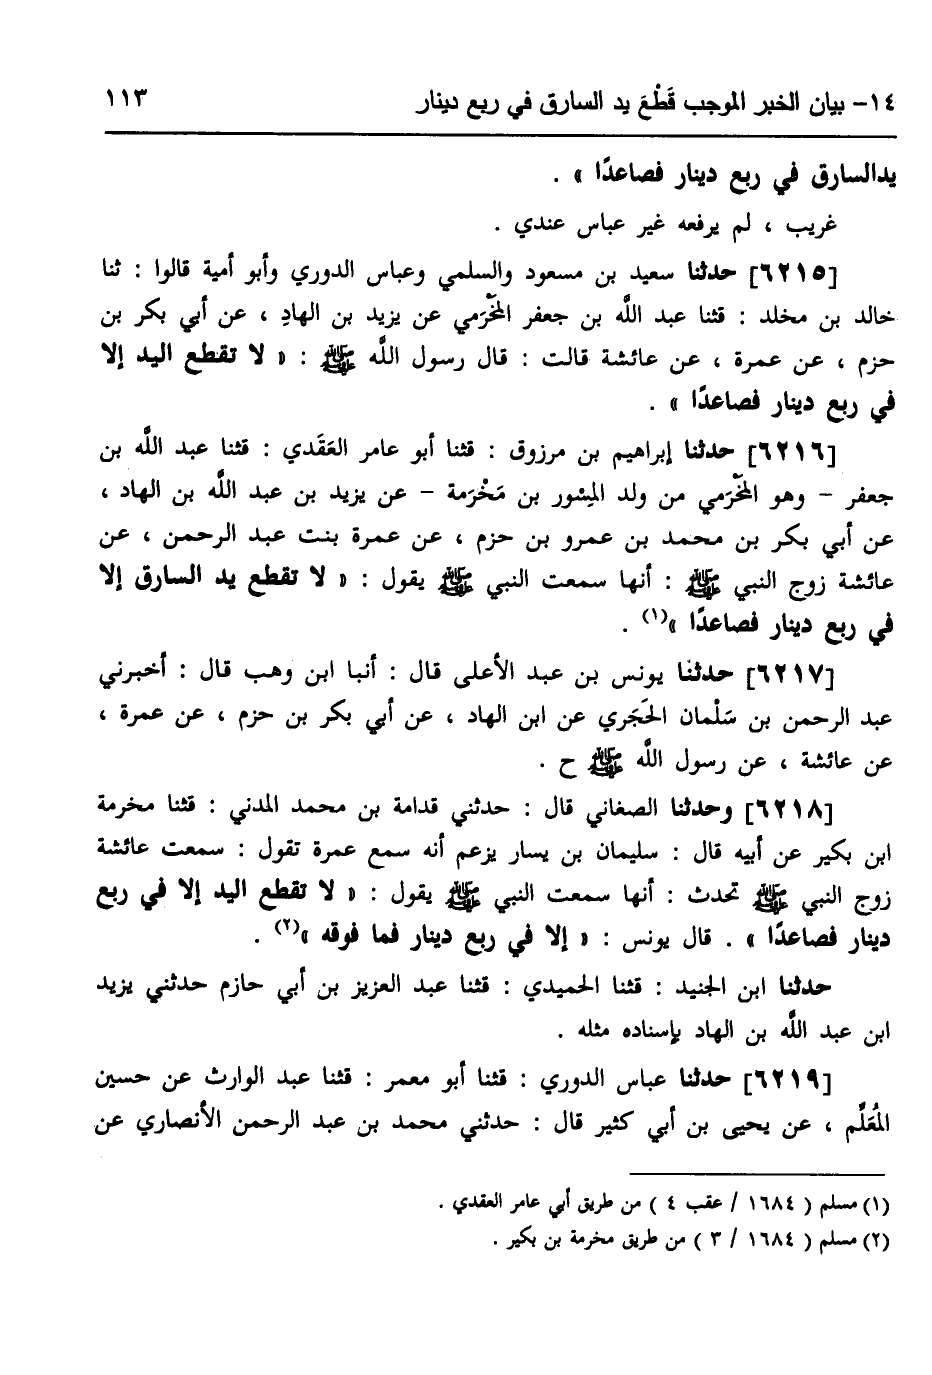 ١٤- بيان الخبر الموجب قَطْعَ يد السارق في ربع دينار ١١٣
يدالسارق في ربع دينار فصاعدًا » .
غريب ، لم يرفعه غير عباس عندي .
[٦٢١٥] حدثنا سعيد بن مسعود والسلمي وعباس الدوري وأبو أمية قالوا : ثنا
خالد بن مخلد : قثنا عبد اللَّه بن جعفر المخَّرَمي عن يزيد بن الهادِ ، عن أبي بكر بن
حزم ، عن عمرة ، عن عائشة قالت : قال رسول اللَّه ﷺ : « لا تقطع اليد إلا
في ربع دينار فصاعدًا » .
[٦٢١٦] حدثنا إبراهيم بن مرزوق : قثنا أبو عامر العَقَدي : قثنا عبد اللَّه بن
جعفر – وهو المخَّرَمي من ولد المِسْور بن مَخْرَمة – عن يزيد بن عبد اللَّه بن الهاد ،
عن أبي بكر بن محمد بن عمرو بن حزم ، عن عمرة بنت عبد الرحمن ، عن
عائشة زوج النبي ﷺ : أنها سمعت النبي ﷺ يقول : « لا تقطع يد السارق إلا
في ربع دينار فصاعدًا »(١) .
[٦٢١٧] حدثنا يونس بن عبد الأعلى قال : أنبا ابن وهب قال : أخبرني
عبد الرحمن بن سَلْمان الحَجَري عن ابن الهاد ، عن أبي بكر بن حزم ، عن عمرة ،
عن عائشة ، عن رسول اللَّه ﷺ ح .
[٦٢١٨] وحدثنا الصغاني قال : حدثني قدامة بن محمد المدني : قثنا مخرمة
ابن بكير عن أبيه قال : سليمان بن يسار يزعم أنه سمع عمرة تقول : سمعت عائشة
زوج النبي ﷺ تحدث : أنها سمعت النبي ﷺ يقول : « لا تقطع اليد إلا في ربع
دينار فصاعدًا » . قال يونس : « إلا في ربع دينار فما فوقه »(٢) .
حدثنا ابن الجنيد : قثنا الحميدي : قثنا عبد العزيز بن أبي حازم حدثني يزيد
ابن عبد اللَّه بن الهاد بإسناده مثله .
[٦٢١٩] حدثنا عباس الدوري : قثنا أبو معمر : قثنا عبد الوارث عن حسين
المُعَلِّم ، عن يحيى بن أبي كثير قال : حدثني محمد بن عبد الرحمن الأنصاري عن
(١) مسلم ( ١٦٨٤ / عقب ٤ ) من طريق أبي عامر العقدي .
(٢) مسلم ( ١٦٨٤ / ٣ ) من طريق مخرمة بن بكير .